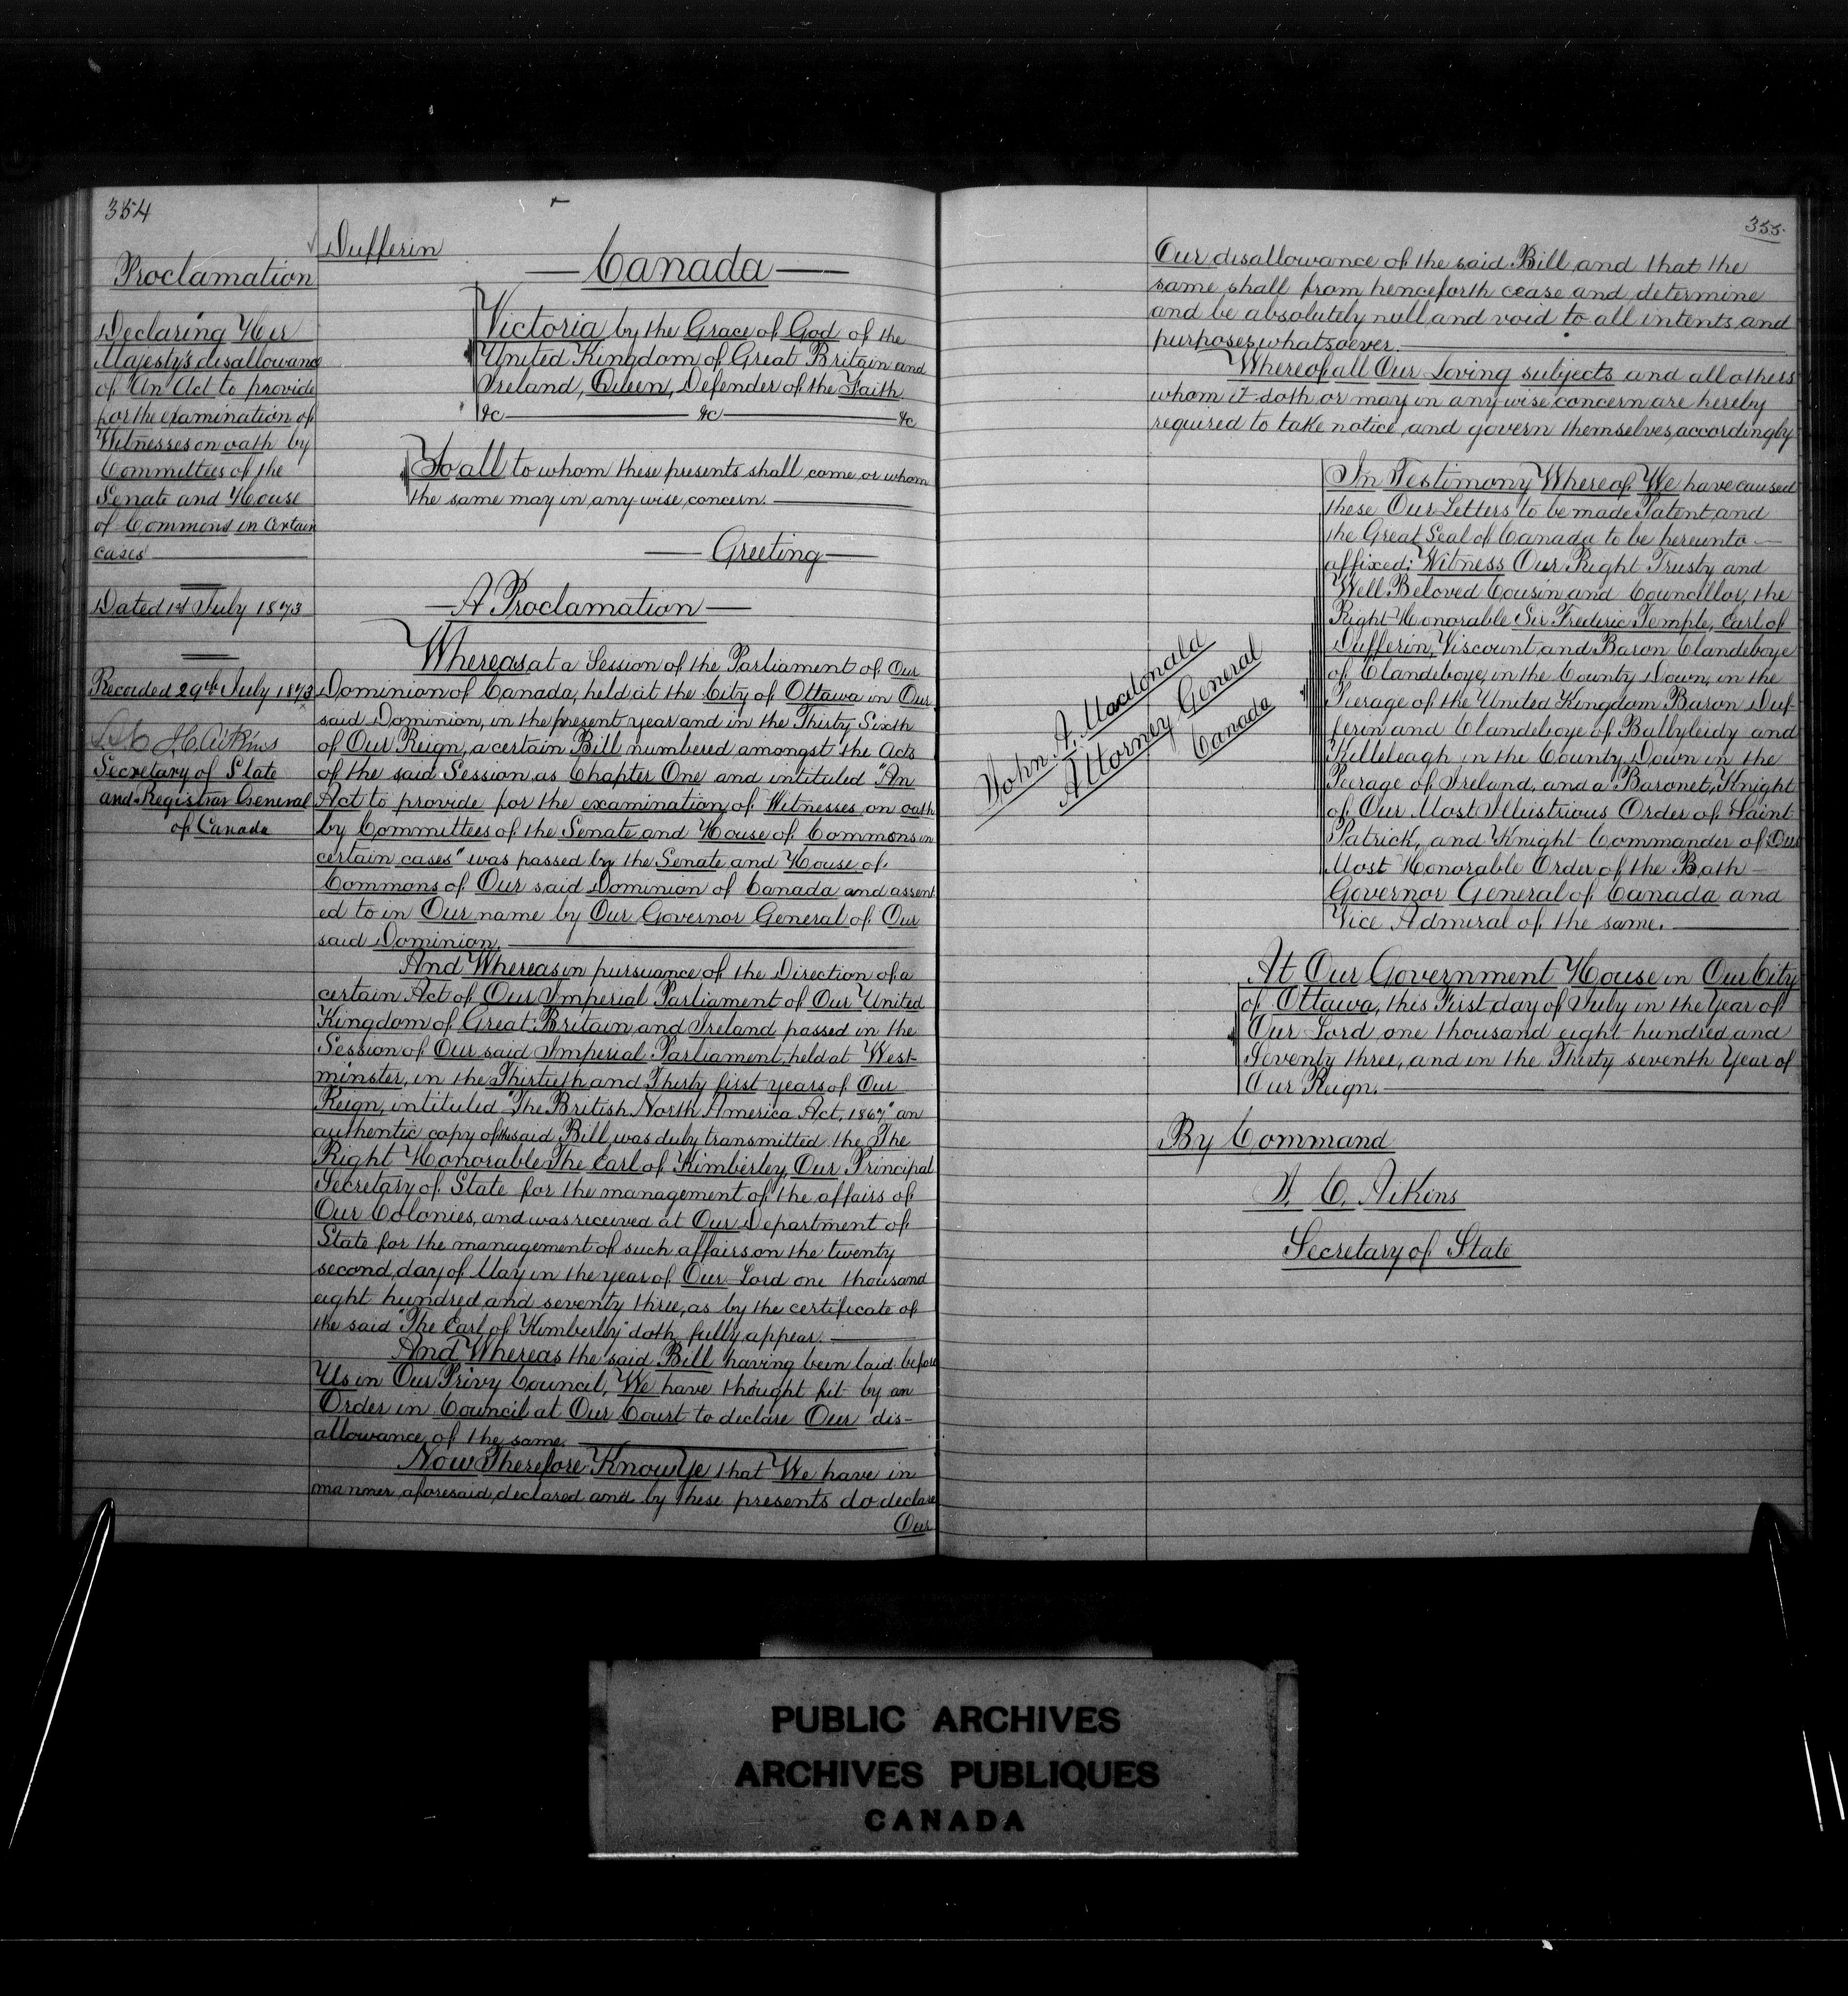 354
Proclamation
Declaring Her
Majesty's disallowance
of An Act to provide
for the examination of
Witnesses on oath by
Committees of the
Senate and House
of Commons in Certain
cases
Dated 1st July 1873
Recorded 29th July 1873
J C Aikins
Secretary of State
and Registrar General
of Canada
Dufferin
Canada
Victoria by the Grace of God of the
United Kingdom of Great Britain and
Ireland, Queen, Defender of the Faith
&c &c &c
To all to whom these presents shall come or whom
the same may in any wise concern.
Greeting
A Proclamation
Whereas at a Session of the Parliament of Our
Dominion of Canada, held at the City of Ottawa in Our
said Dominion, in the present year and in the Thirty Sixth
of Our Reign, a certain Bill numbered amongst the Acts
of the said Session as Chapter One and intituled "An
Act to provide for the examination of Witnesses on oath
by Committees of the Senate and House of Commons in
certain cases" was passed by the Senate and House of
Commons of Our said Dominion of Canada and assent
ed to in Our name by Our Governor General of Our
said Dominion.
And Whereas in pursuance of the Direction of a
certain Act of Our Imperial Parliament of Our United
Kingdom of Great Britain and Ireland passed in the
Session of Our said Imperial Parliament, held at West-
minster, in the Thirtieth and Thirty first years of Our
Reign, intituled "The British North America Act, 1867," an
authentic copy of the said Bill, was duly transmitted the The
Right Honorable The Earl of Kimberley, Our Principal
Secretary of State for the management of the affairs of
Our Colonies, and was received at Our Department of
State for the management of such affairs on the twenty
second day of May in the year of Our Lord one thousand
eight hundred and seventy three, as by the certificate of
the said "The Earl of Kimberley" doth fully appear.
And Whereas the said Bill having been laid before
Us in Our Privy Council, We have thought fit by an
Order in Council at Our Court to declare Our dis-
allowance of the same.
Now Therefore Know Ye that We have in
manner aforesaid, declared and by these presents do declare
Our
355.
Our disallowance of the said Bill and that the
same shall from henceforth cease and determine
and be absolutely null and void to all intents and
purposes whatsoever.
Whereof all Our Loving subjects and all others
whom it doth or may in any wise concern are hereby
required to take notice, and govern themselves accordingly
In Testimony Whereof We have caused
these Our Letters to be made Patent and
the Great Seal of Canada to be hereunto
affixed: Witness Our Right Trusty and
Well Beloved Cousin and Councillor, the
Right Honorable Sir Frederic Temple, Earl of
Dufferin, Viscount and Baron Clandeboye
of Clandeboye, in the County Down, in the
Peerage of the United Kingdom Baron Duf-
ferin and Clandeboye of Ballyleidy and
Killeleagh in the County Down in the
Peerage of Ireland, and a Baronet, Knight
of Our Most Illustrious Order of Saint
Patrick, and Knight Commander of Our
Most Honorable Order of the Bath
Governor General of Canada and
Vice Admiral of the same.
John. A. Macdonald
Attorney General
Canada
At Our Government House in Our City
of Ottawa, this First day of July in the Year of
Our Lord one thousand eight hundred and
Seventy three, and in the Thirty seventh Year of
Our Reign.
By Command
J. C. Aikins
Secretary of State
PUBLIC ARCHIVES
ARCHIVES PUBLIQUES
CANADA